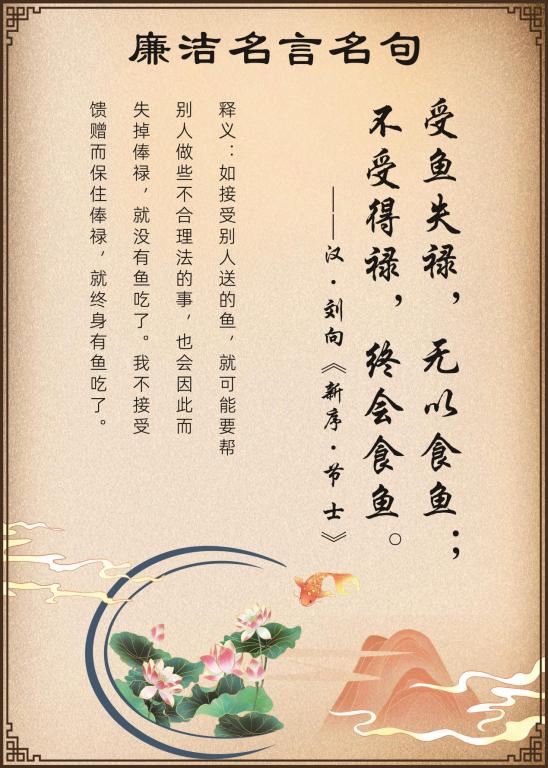 廉洁名言名句
受鱼失禄，无以食鱼；
不受得禄，终会食鱼。
——汉·刘向《新序·节士》
释义：如接受别人送的鱼，就可能要帮
别人做些不合理法的事，也会因此而
失掉俸禄，就没有鱼吃了。我不接受
馈赠而保住俸禄，就终身有鱼吃了。